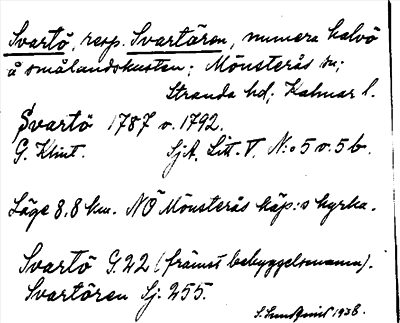 Svartö, resp. Svartören, numera halvö
å smålandskusten; Mönsterås sn;
Stranda hd; Kalmar l.
Svartö 1787 o. 1792.
G. Klint. SjA. Litt. V. N:o 5 o. 5 b.
Läge 8,8 km. NÖ Mönsterås köp:s kyrka.
Svartö G. 22 (främst bebyggelsenamn).
Svartören Sj. 255.
1938.